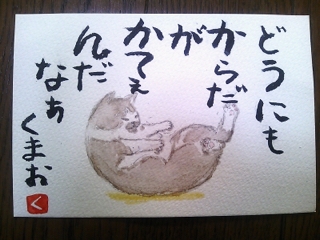 どうにも
からだ
が
かてぇ
んだ
なぁ
くまお
く